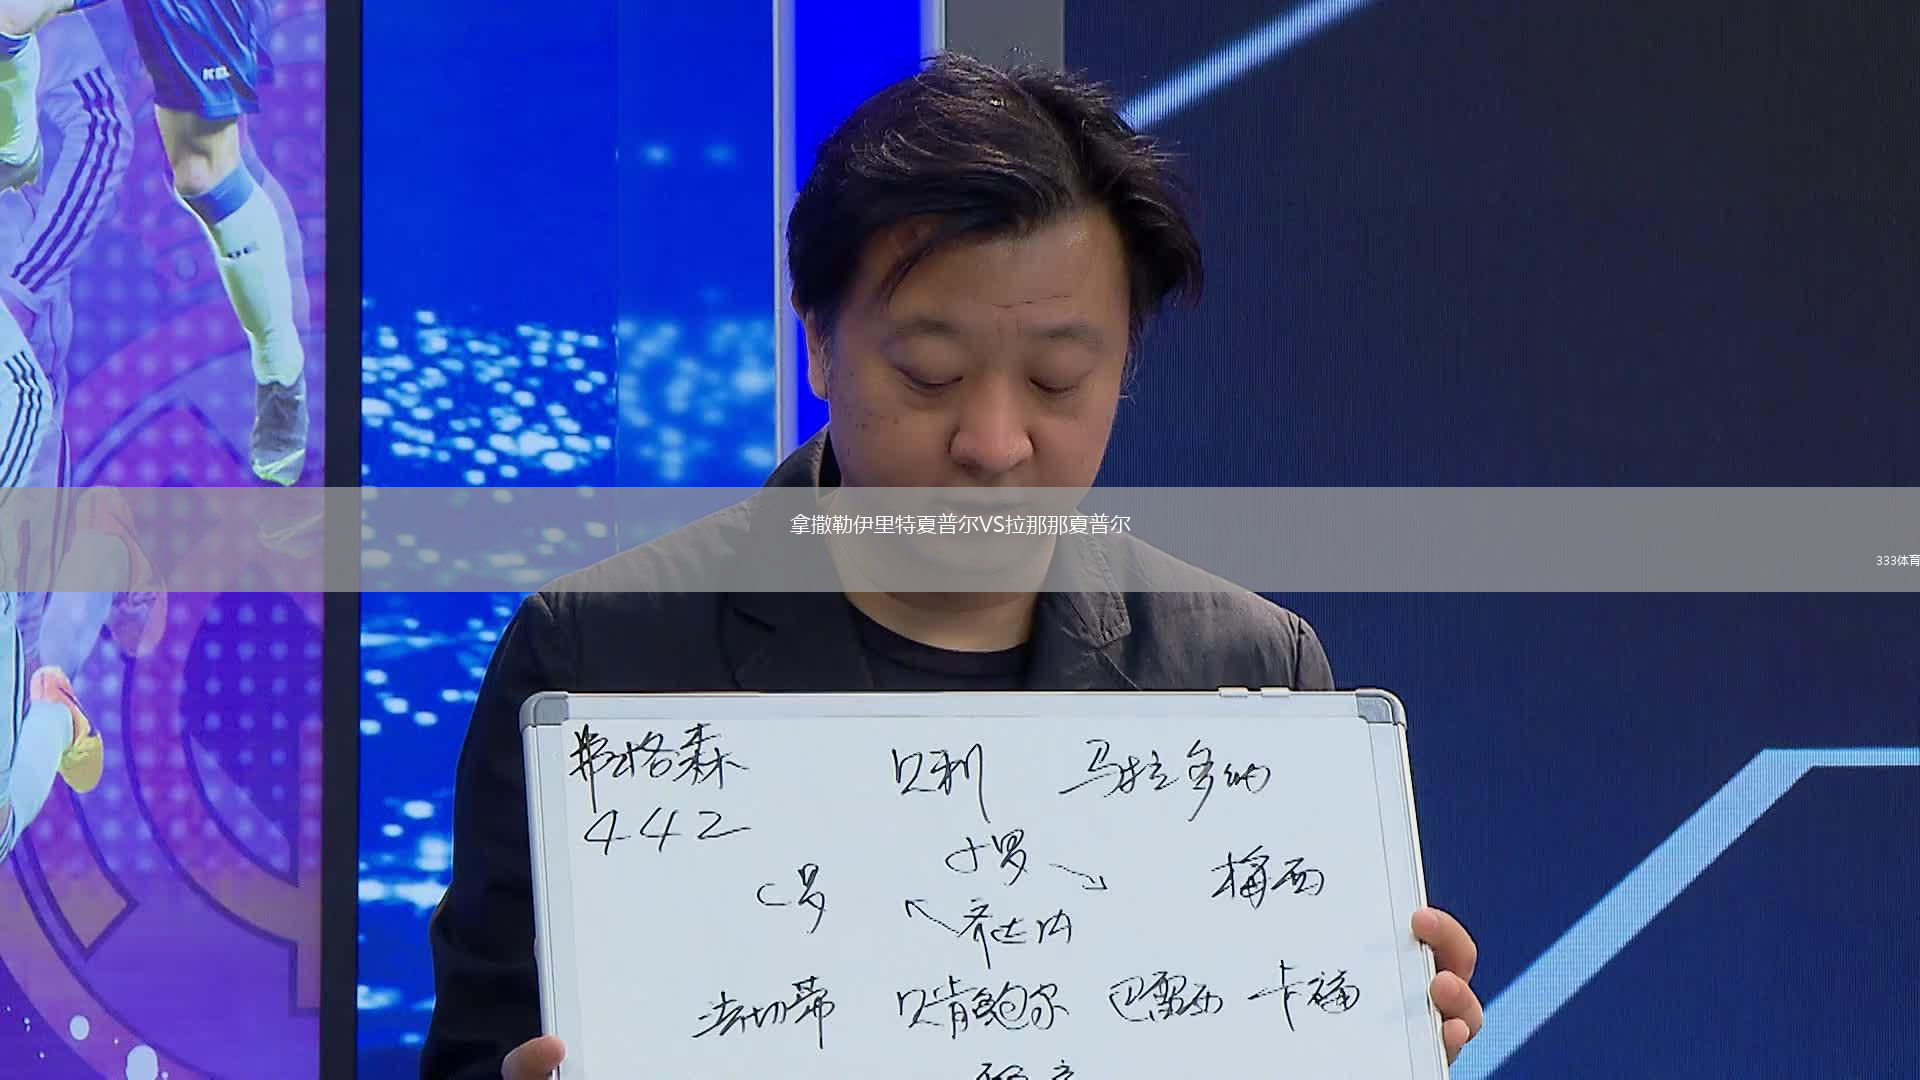 拿撒勒伊里特夏普尔VS拉那那夏普尔
333体育
弗格森 贝利 马拉多纳
442
C罗 小罗 梅西
齐达内
法切蒂 贝肯鲍尔 巴雷西 卡福